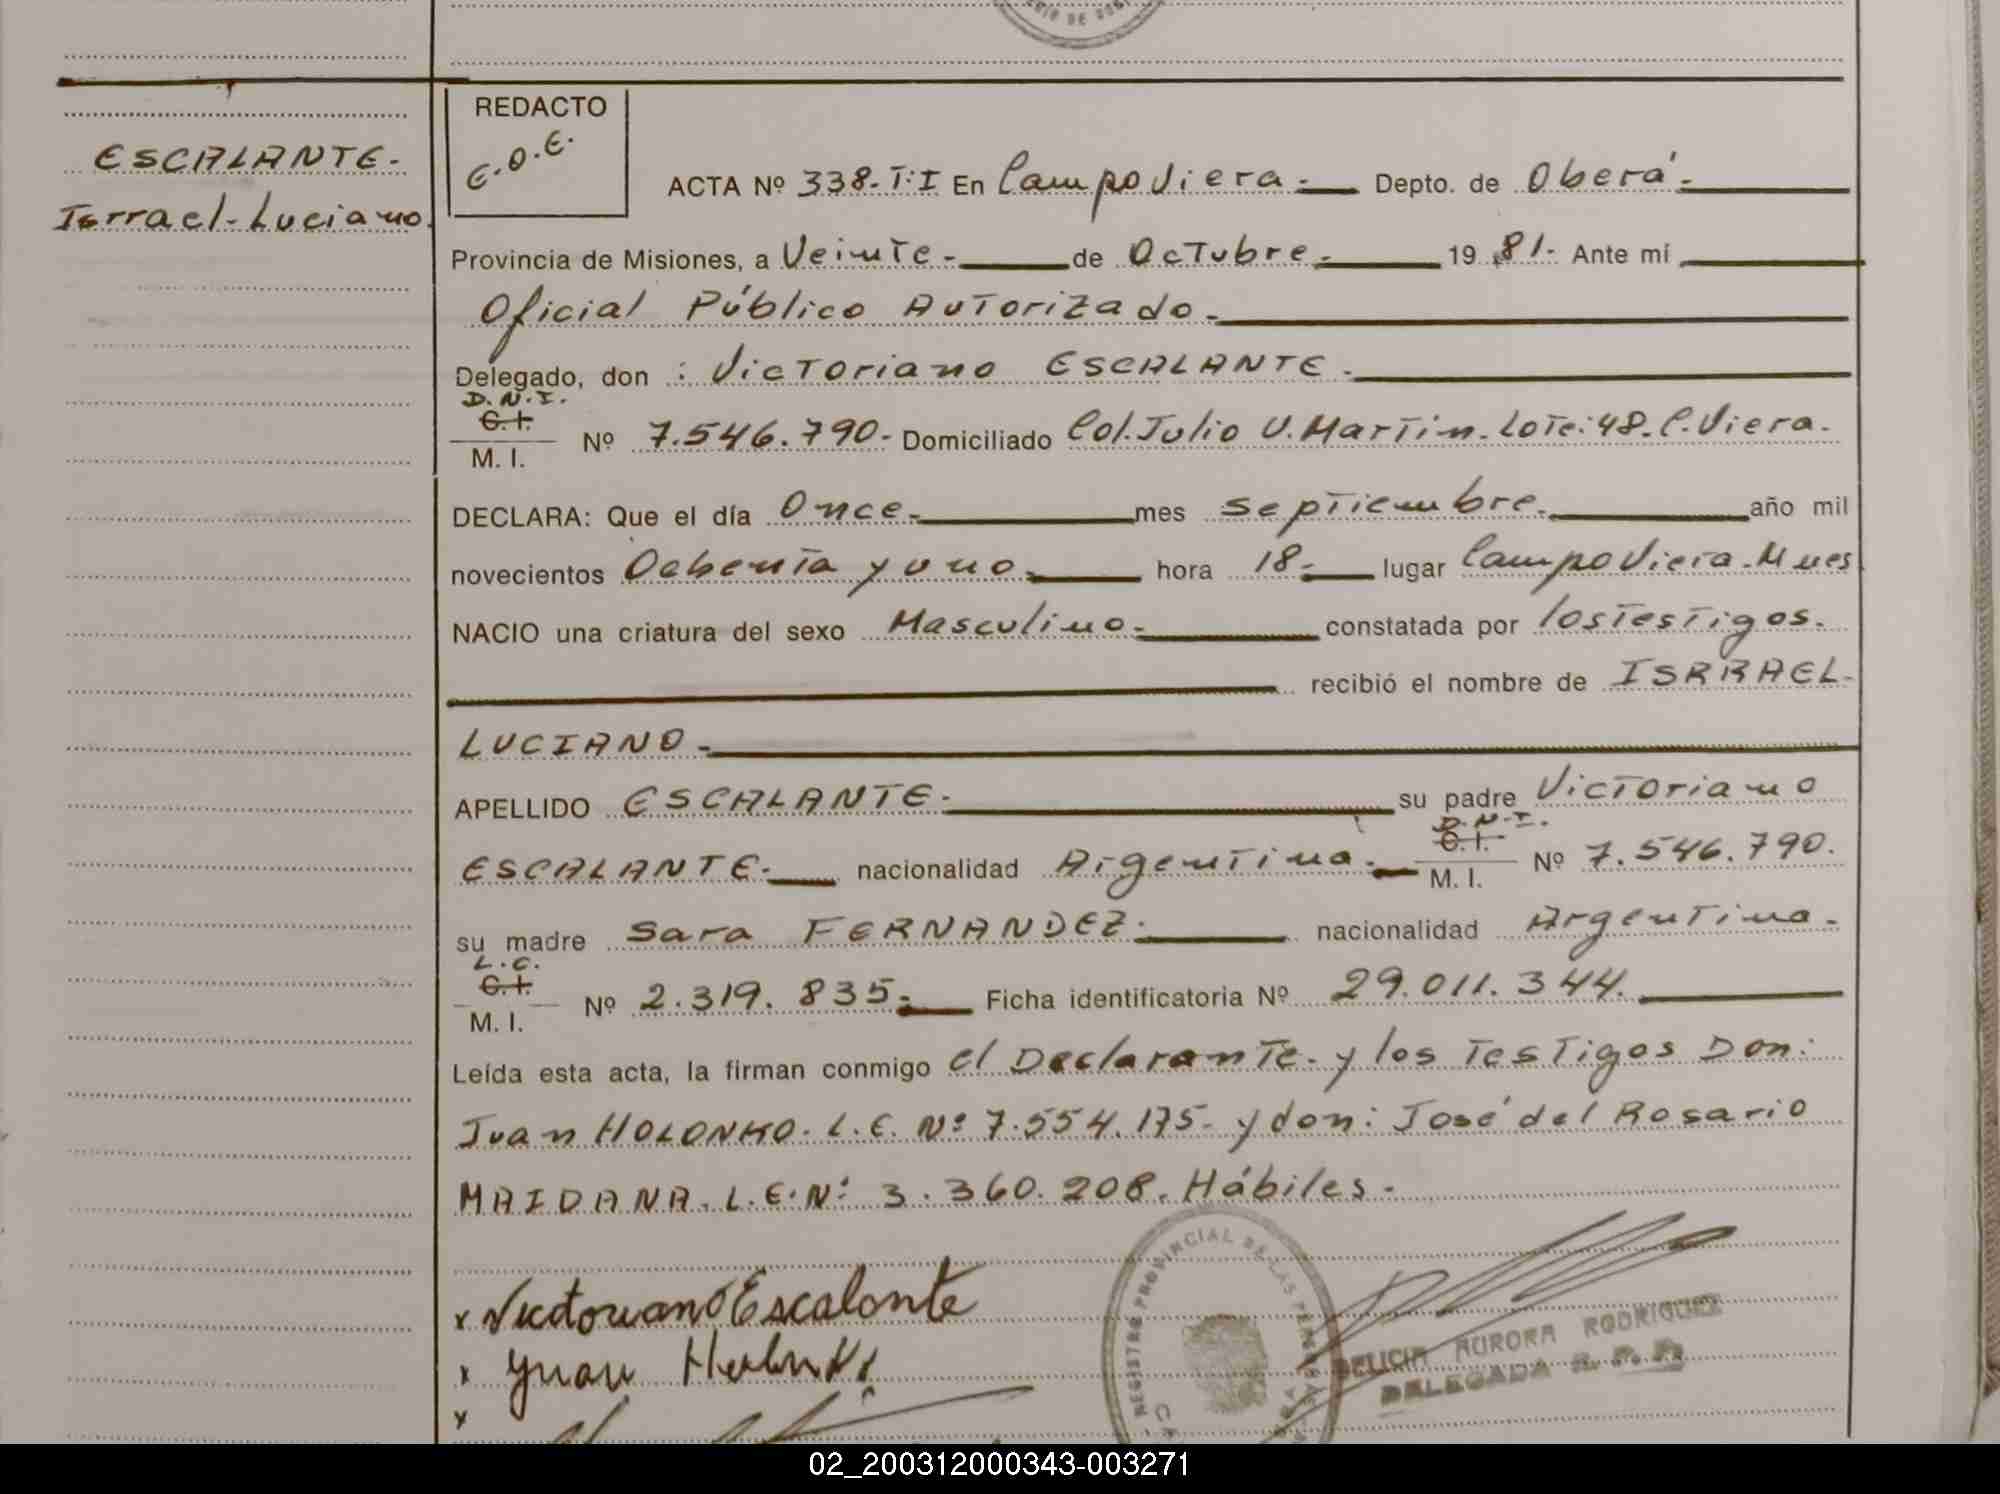 ESCALANTE.
Isrrael-Luciano.
REDACTO
E.O.E.
ACTA Nº 338-T:I En Campo Viera.- Depto. de Oberá.-
Provincia de Misiones, a Veinte- de Octubre.- 19 81.- Ante mí
Oficial Público Autorizado.-
Delegado, don : Victoriano ESCALANTE.-
D.N.I.
C.I.
M. I. Nº 7.546.790- Domiciliado Col. Julio U. Martin. Lote: 48. C. Viera.
DECLARA: Que el día Once.- mes septiembre.- año mil
novecientos Ochenta y uno.- hora 18.- lugar Campo Viera. Mnes
NACIO una criatura del sexo Masculino.- constatada por los Testigos.
recibió el nombre de ISRRAEL-
LUCIANO.-
APELLIDO ESCALANTE.- su padre Victoriano
ESCALANTE.- nacionalidad Argentina.-
D.N.I.
C.I.
M. I. Nº 7.546.790.
su madre Sara FERNANDEZ.- nacionalidad Argentina.-
L.C.
C.I.
M. I. Nº 2.319.835.- Ficha identificatoria Nº 29.011.344.
Leída esta acta, la firman conmigo el Declarante.- y los Testigos Don:
Juan HOLONKO. L.E. Nº 7.554.175- y don: José del Rosario
MAIDANA. L.E. Nº 3.360.208. Hábiles.-
x Victoriano Escalante
x Juan
x
REGISTRO PROVINCIAL DE LAS PERSONAS
AURORA RODRIGUEZ
DELEGADA R. P. P.
02_200312000343-003271